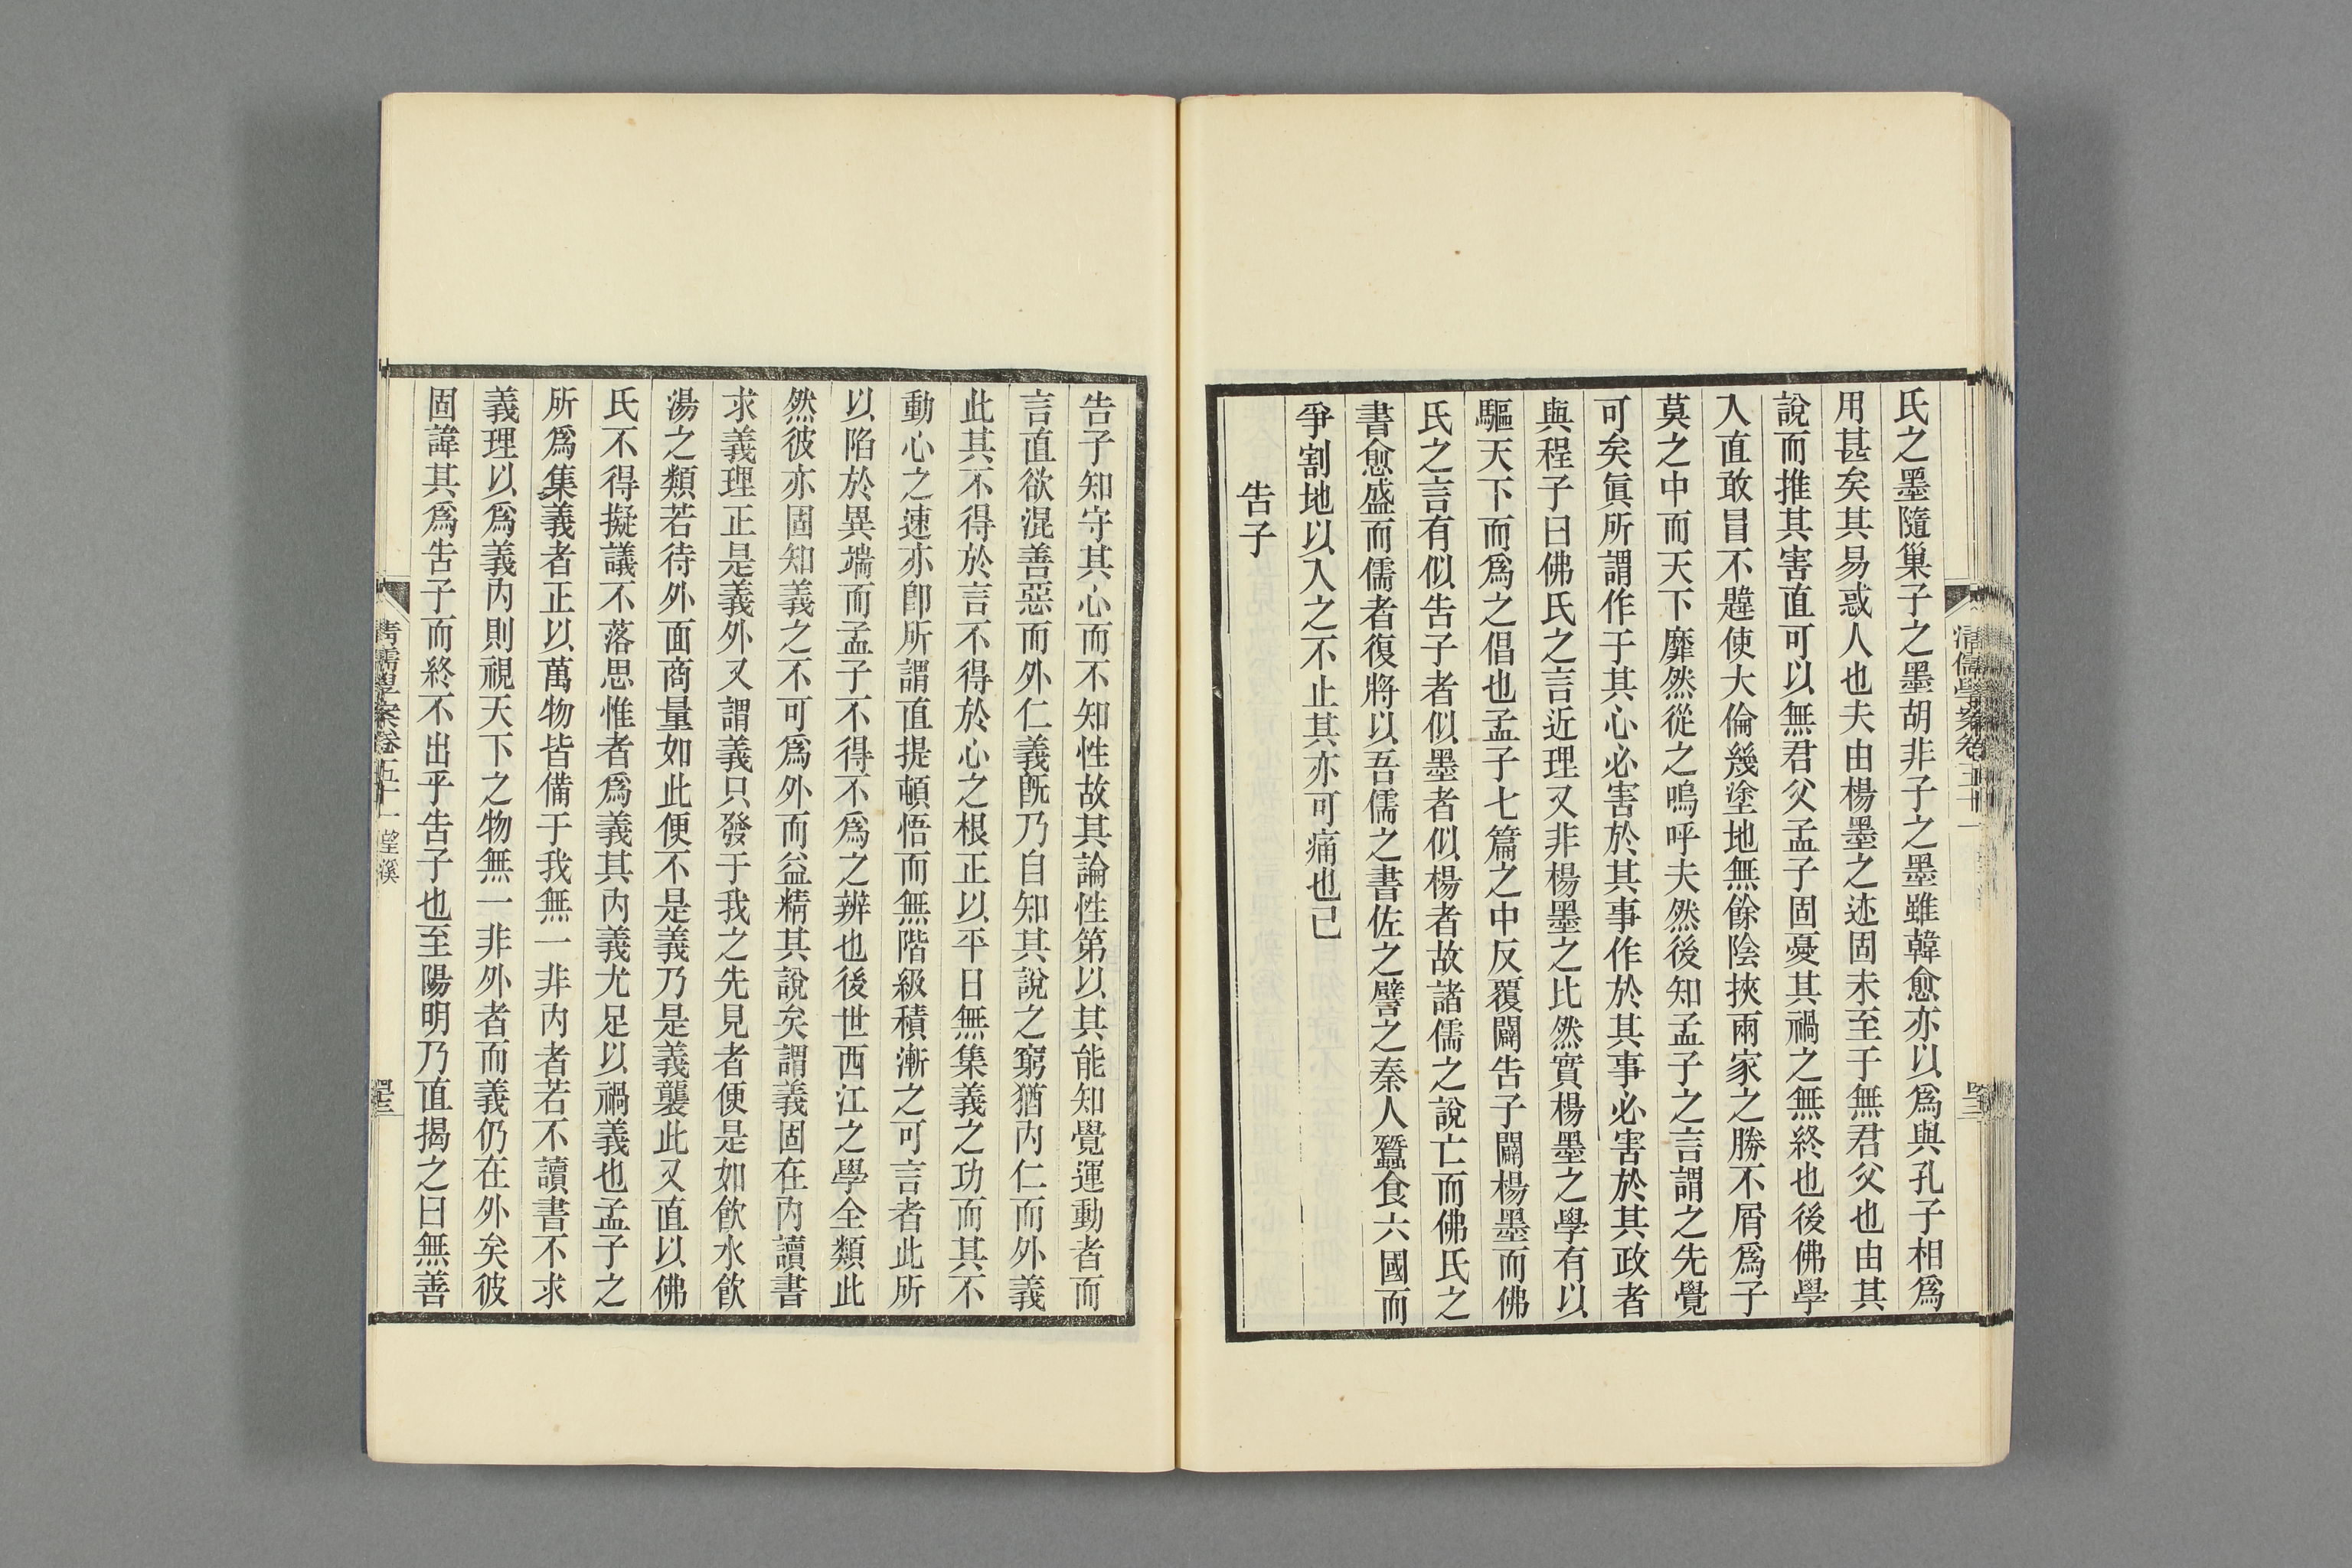 氏之墨隨巢子之墨胡非子之墨雖韓愈亦以爲與孔子相爲
用甚矣其易惑人也夫由楊墨之迹固未至于無君父也由其
說而推其害直可以無君父孟子固憂其禍之無終也後佛學
入直敢冒不韙使大倫幾塗地無餘陰挾兩家之勝不屑爲子
莫之中而天下靡然從之嗚呼夫然後知孟子之言謂之先覺
可矣眞所謂作于其心必害於其事作於其事必害於其政者
與程子曰佛氏之言近理又非楊墨之比然實楊墨之學有以
驅天下而爲之倡也孟子七篇之中反覆闢告子闢楊墨而佛
氏之言有似告子者似墨者似楊者故諸儒之說亡而佛氏之
書愈盛而儒者復將以吾儒之書佐之譬之秦人蠶食六國而
爭割地以入之不止其亦可痛也已
告子
清儒學案卷五十一
告子知守其心而不知性故其論性第以其能知覺運動者而
言直欲混善惡而外仁義旣乃自知其說之窮猶內仁而外義
此其不得於言不得於心之根正以平日無集義之功而其不
動心之速亦卽所謂直提頓悟而無階級積漸之可言者此所
以陷於異端而孟子不得不爲之辨也後世西江之學全類此
然彼亦固知義之不可爲外而益精其說矣謂義固在內讀書
求義理正是義外又謂義只發于我之先見者便是如飮水飮
湯之類若待外面商量如此便不是義乃是義襲此又直以佛
氏不得擬議不落思惟者爲義其內義尤足以禍義也孟子之
所爲集義者正以萬物皆備于我無一非內者若不讀書不求
義理以爲義內則視天下之物無一非外者而義仍在外矣彼
固諱其爲告子而終不出乎告子也至陽明乃直揭之曰無善
清儒學案卷五十一 望溪